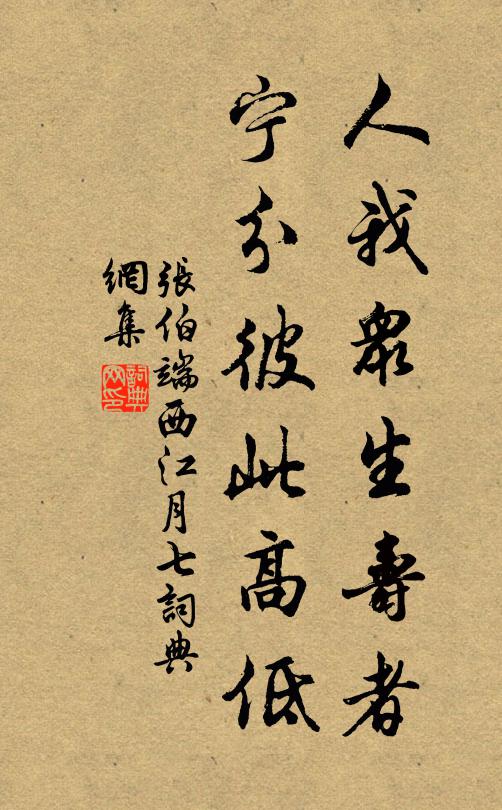 人我眾生壽者
宁分彼此高低
張伯端西江月七詞典
網集
詞典
网印